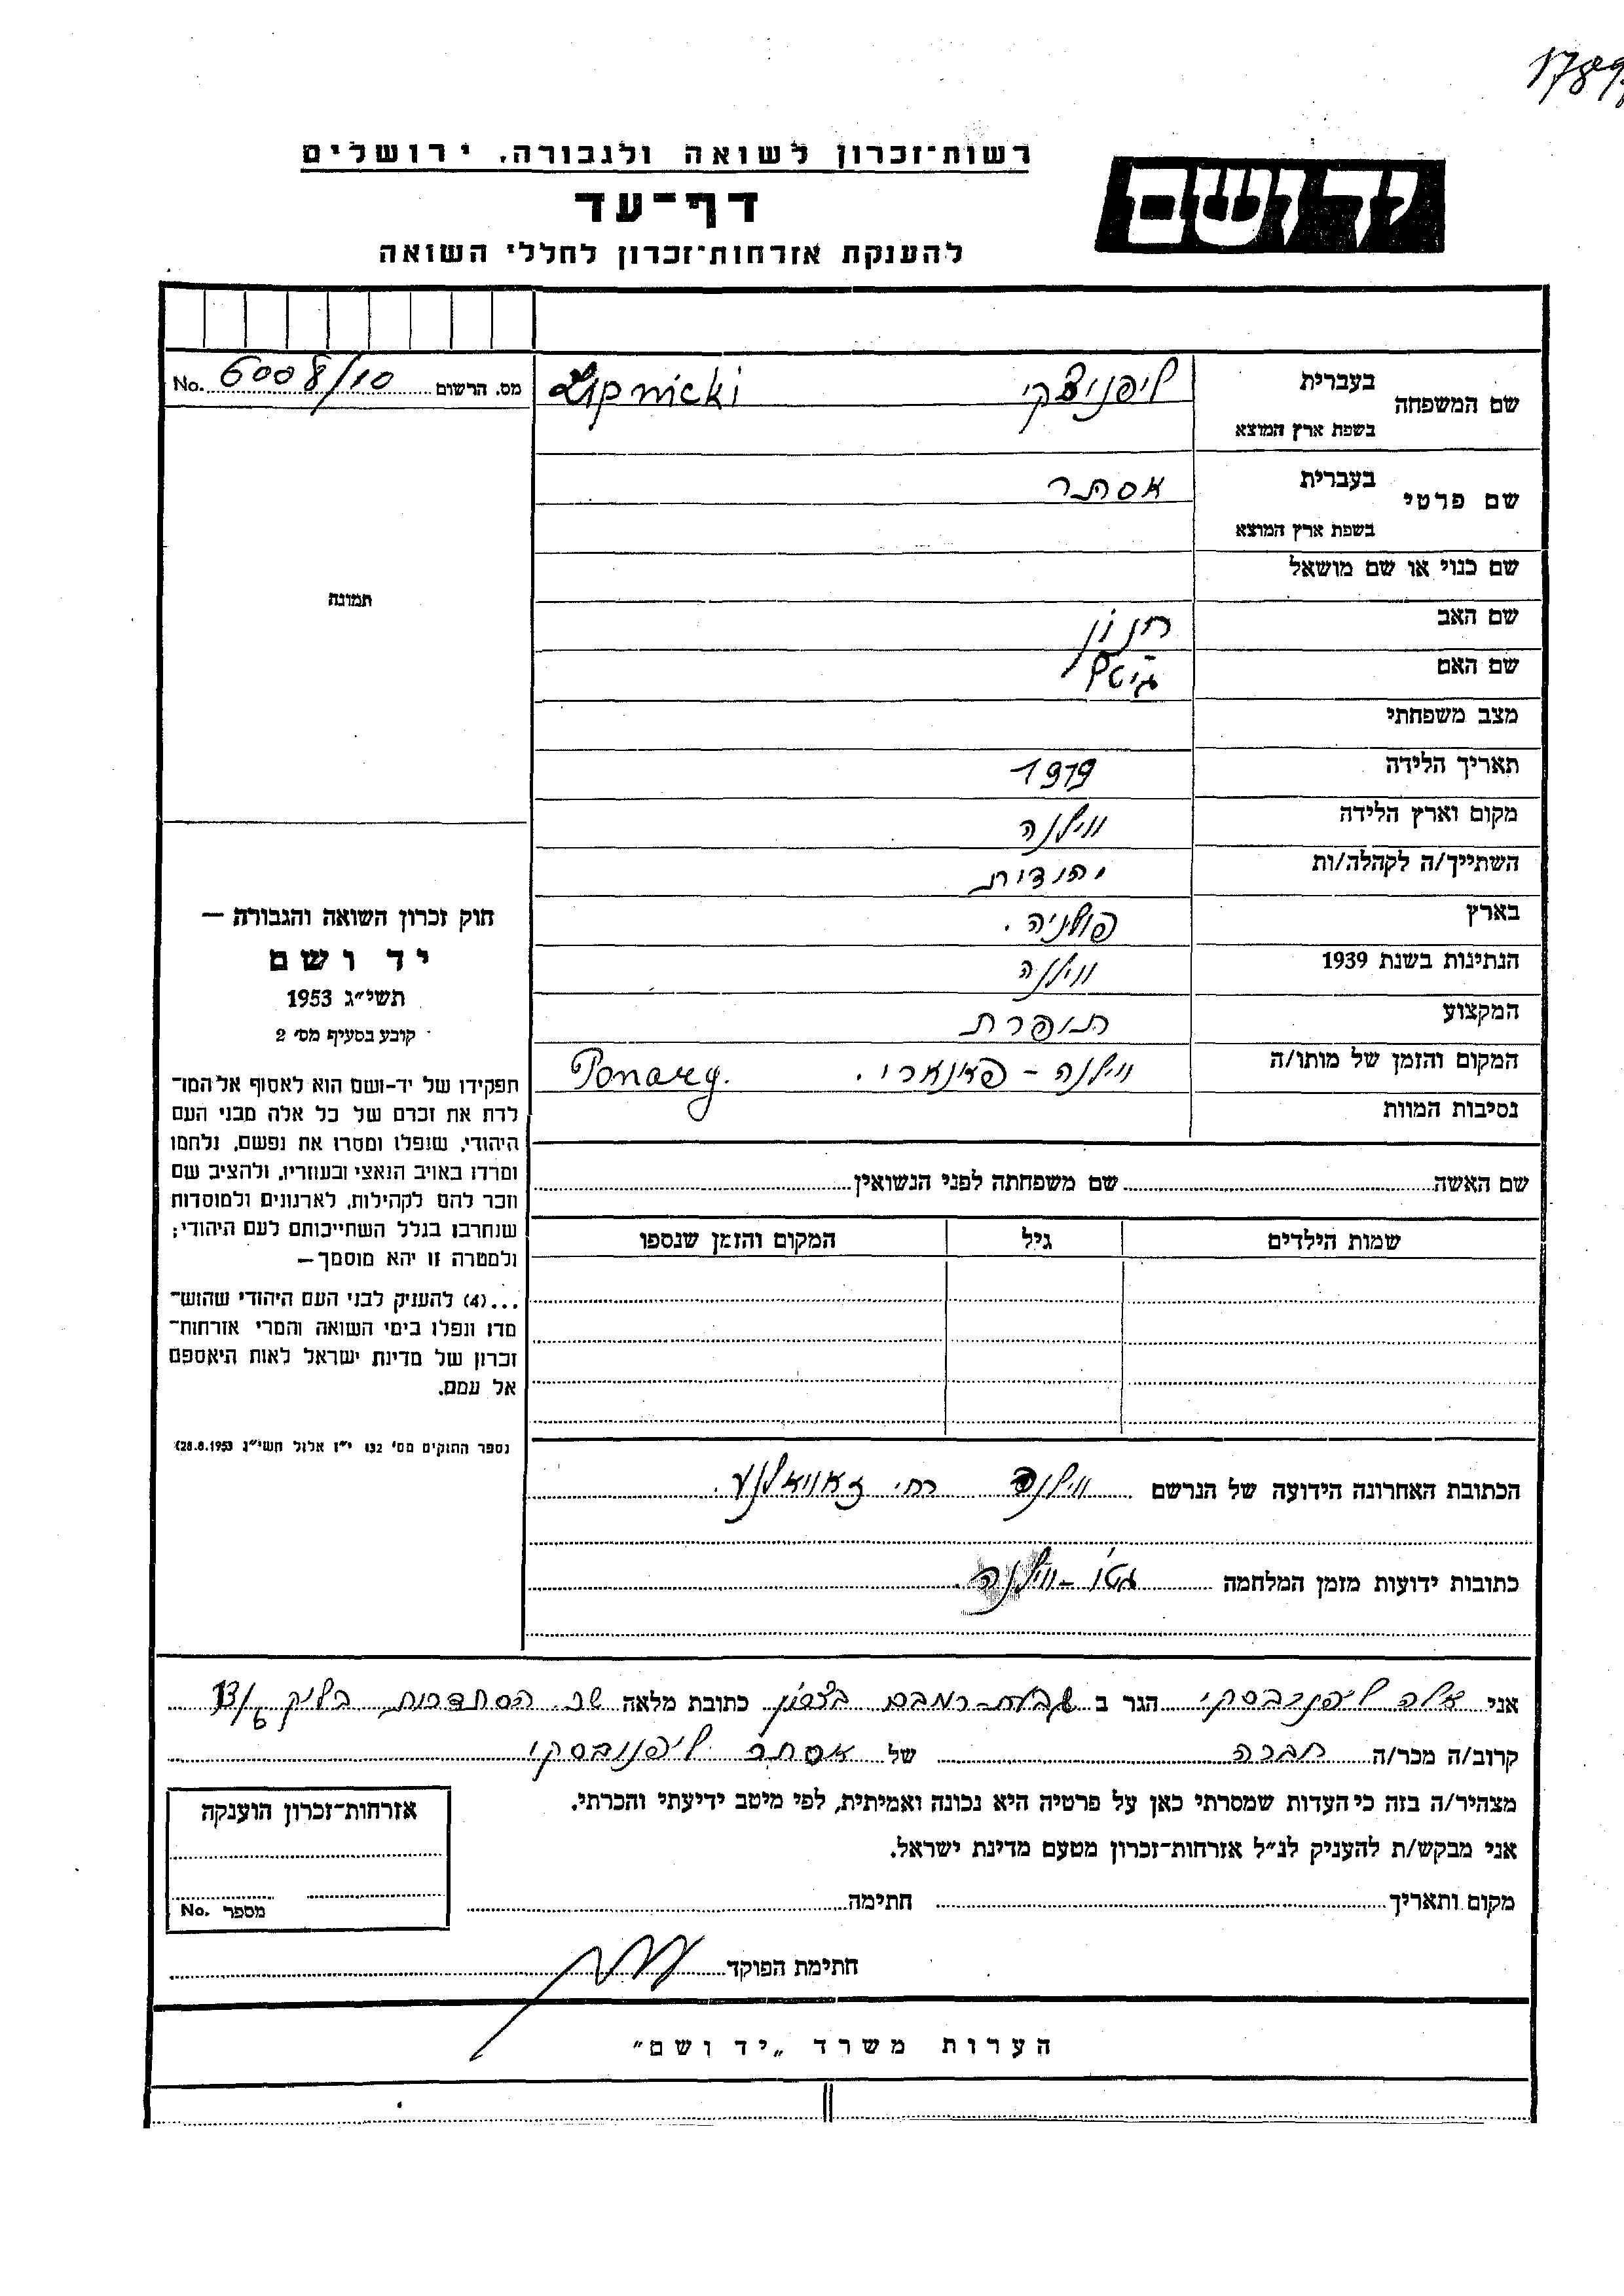 רשות־זכרון לשואה ולגבורה, ירושלים
יד ושם
דף־עד
להענקת אזרחות־זכרון לחללי השואה
מס. הרשום 6008/10 No.
שם המשפחה
בעברית ליפניצקי Lipnicki
בשפת ארץ המוצא
שם פרטי
בעברית אסתר
בשפת ארץ המוצא
שם כנוי או שם מושאל
שם האב חנון
שם האם גיטה
מצב משפחתי
תאריך הלידה 1919
מקום וארץ הלידה ווילנה
השתייך/ה לקהלה/ות יהודית
בארץ פולניה.
הנתינות בשנת 1939 ווילנה
המקצוע תופרת
המקום והזמן של מותו/ה ווילנה - פאנארי. Ponary.
נסיבות המוות
שם האשה שם משפחתה לפני הנשואין
שמות הילדים גיל המקום והזמן שנספו
הכתובת האחרונה הידועה של הנרשם ווילנה רח' זאוואלנע.
כתובות ידועות מזמן המלחמה גטו - ווילנה.
תמונה
חוק זכרון השואה והגבורה —
יד ושם
תשי״ג 1953
קובע בסעיף מס׳ 2
תפקידו של יד-ושם הוא לאסוף אל המו־
לדת את זכרם של כל אלה מבני העם
היהודי, שנפלו ומסרו את נפשם, נלחמו
ומרדו באויב הנאצי ובעוזריו, ולהציב שם
וזכר להם לקהילות, לארגונים ולמוסדות
שנחרבו בגלל השתייכותם לעם היהודי;
ולמטרה זו יהא מוסמך—
...(4) להעניק לבני העם היהודי שהוש־
מדו ונפלו בימי השואה והמרי אזרחות־
זכרון של מדינת ישראל לאות היאספם
אל עמם.
(ספר החוקים מס׳ 132 י״ז אלול תשי״ג 28.8.1953)
אני ליפנובסקי הגר ב כתובת מלאה שכ. הסתדרות בלוק
קרוב/ה מכר/ה חברה של אסתר ליפנובסקי
מצהיר/ה בזה כי העדות שמסרתי כאן על פרטיה היא נכונה ואמיתית, לפי מיטב ידיעתי והכרתי.
אני מבקש/ת להעניק לנ״ל אזרחות־זכרון מטעם מדינת ישראל.
מקום ותאריך חתימה
חתימת הפוקד
אזרחות־זכרון הוענקה
מספר No.
הערות משרד „יד ושם״